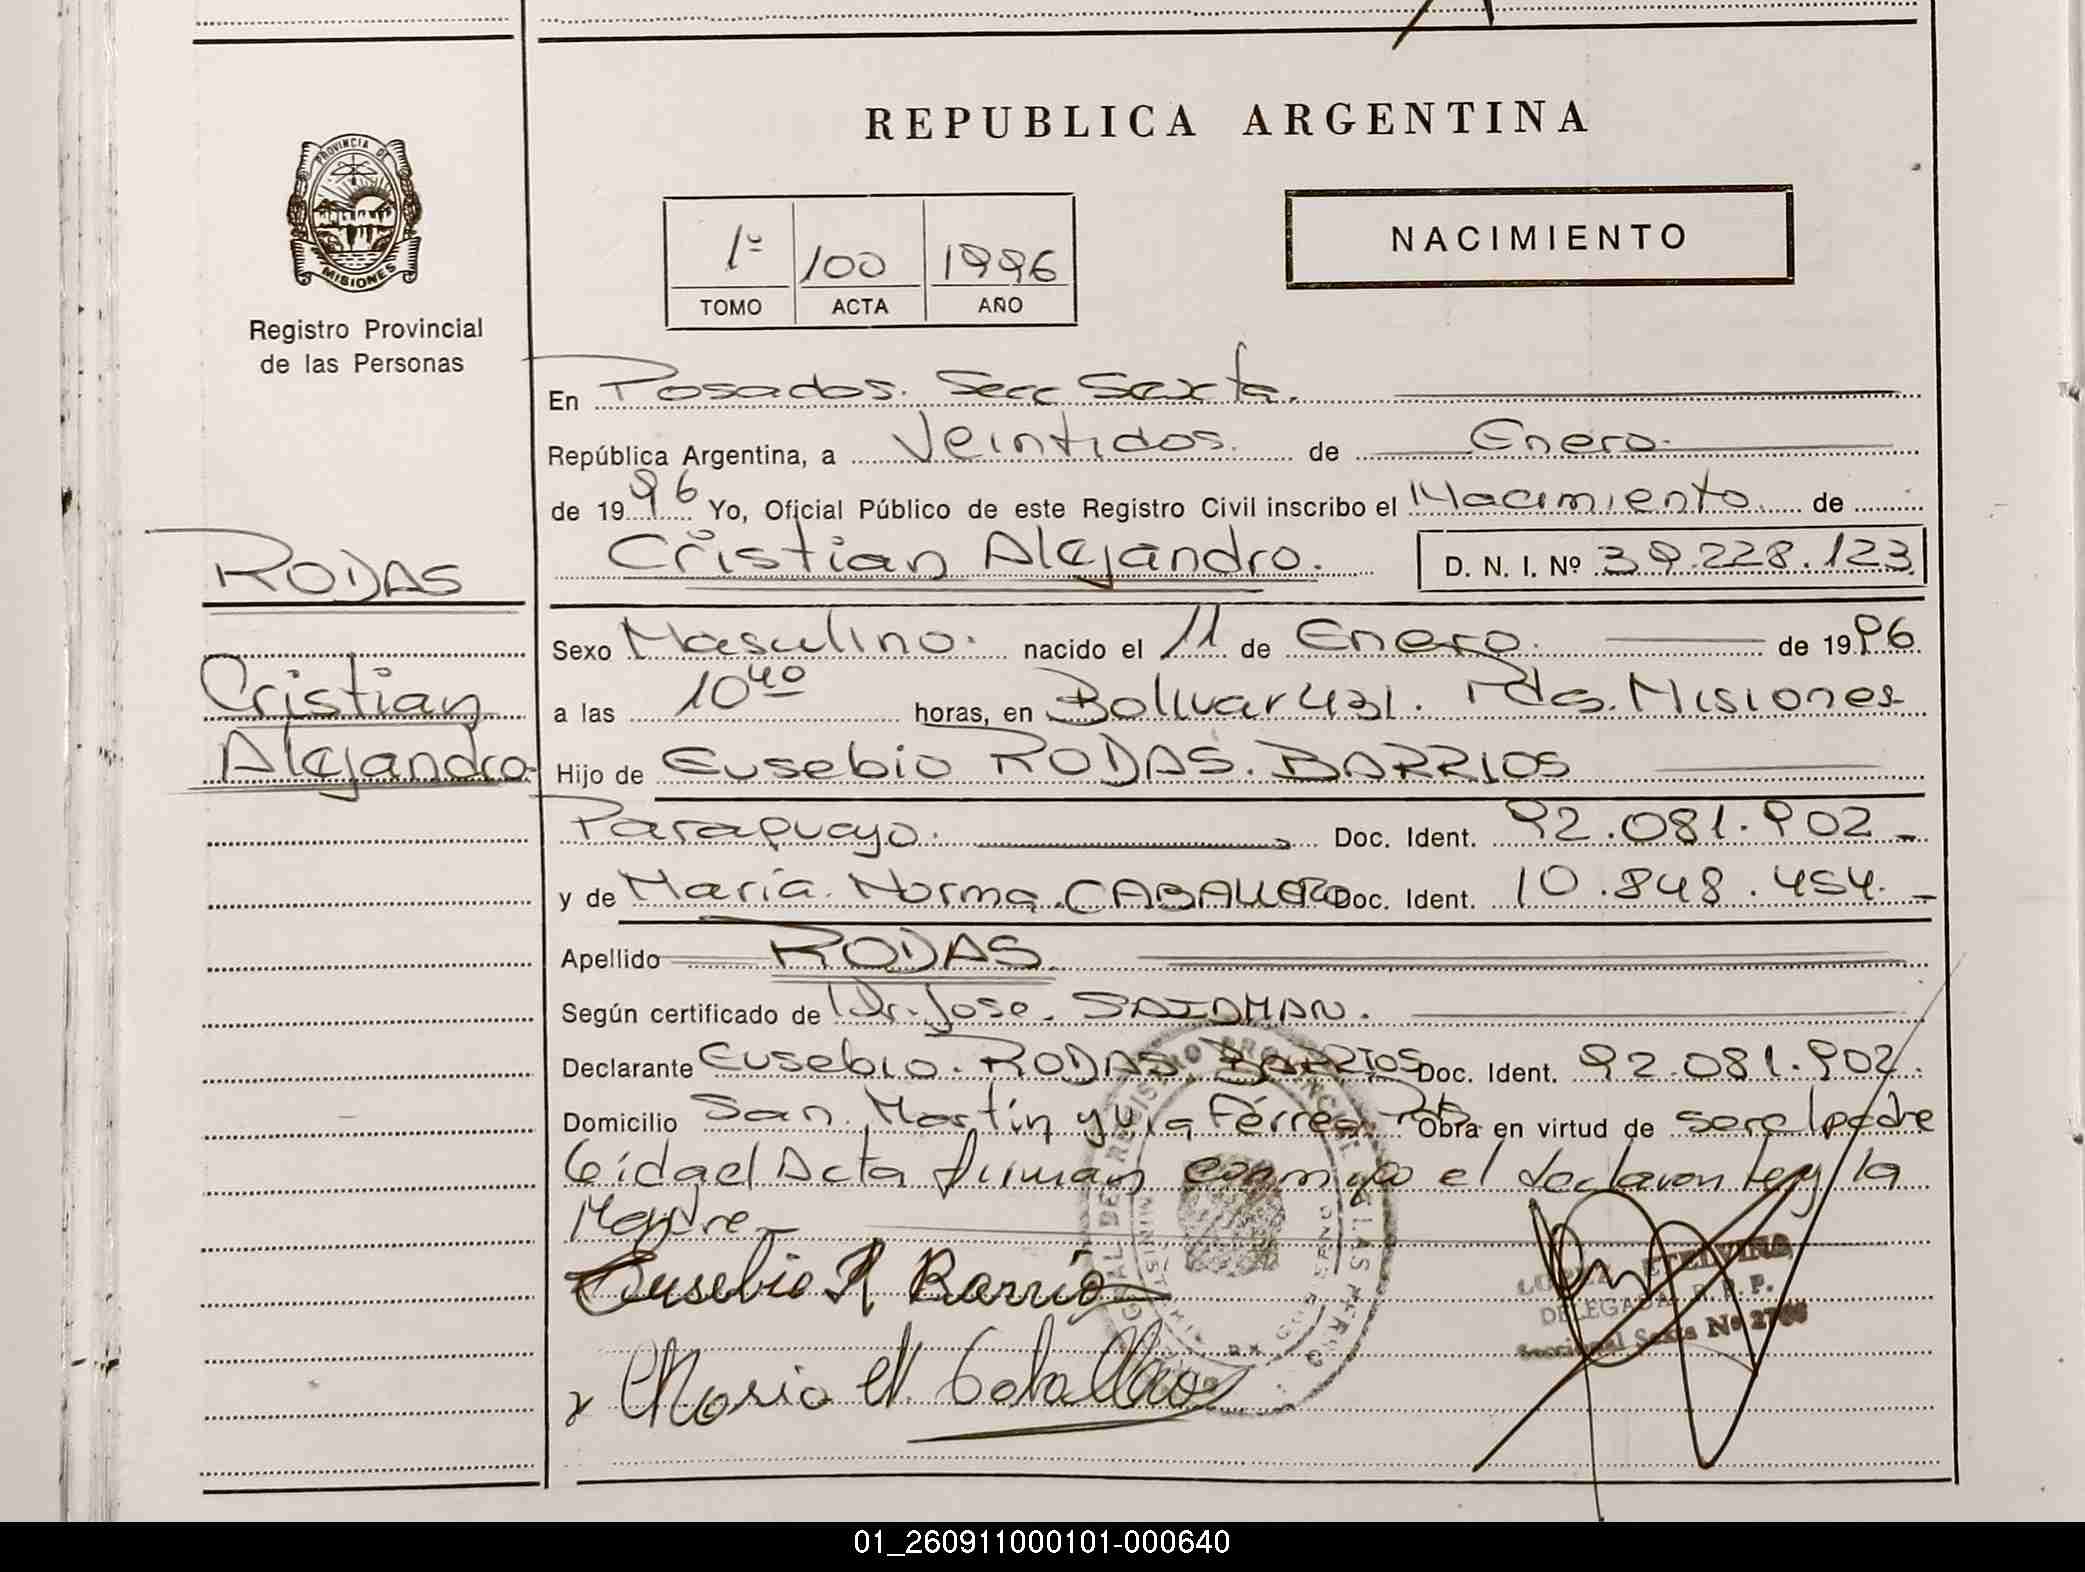 REPUBLICA ARGENTINA
PROVINCIA DE
MISIONES
Registro Provincial
de las Personas
1º 100 1996
TOMO ACTA AÑO
NACIMIENTO
En Posadas. Secc Sexta.
República Argentina, a Veintidos. de Enero.
de 1996 Yo, Oficial Público de este Registro Civil inscribo el Nacimiento de
Cristian Alejandro. D. N. I. Nº 39.228.123
RODAS
Cristian
Alejandro
Sexo Masculino. nacido el 11 de Enero. de 1996
a las 10 40 horas, en Bolivar 431. Pdas. Misiones
Hijo de Eusebio RODAS. BARRIOS
Paraguayo. Doc. Ident. 92.081.902
y de María Norma CABALLERO Doc. Ident. 10.848.454.
Apellido RODAS
Según certificado de Dr. Jose. SAIDMAN.
Declarante Eusebio. RODAS. BARRIOS Doc. Ident. 92.081.902
Domicilio San Martín y Vía Férrea Obra en virtud de ser el padre
Leída el Acta firman conmigo el declarante y la
Madre
Eusebio R Barrio
Maria N. Caballero
ETELVINA
DELEGADA R. P. P.
Seccional Sexta Nº
01_260911000101-000640